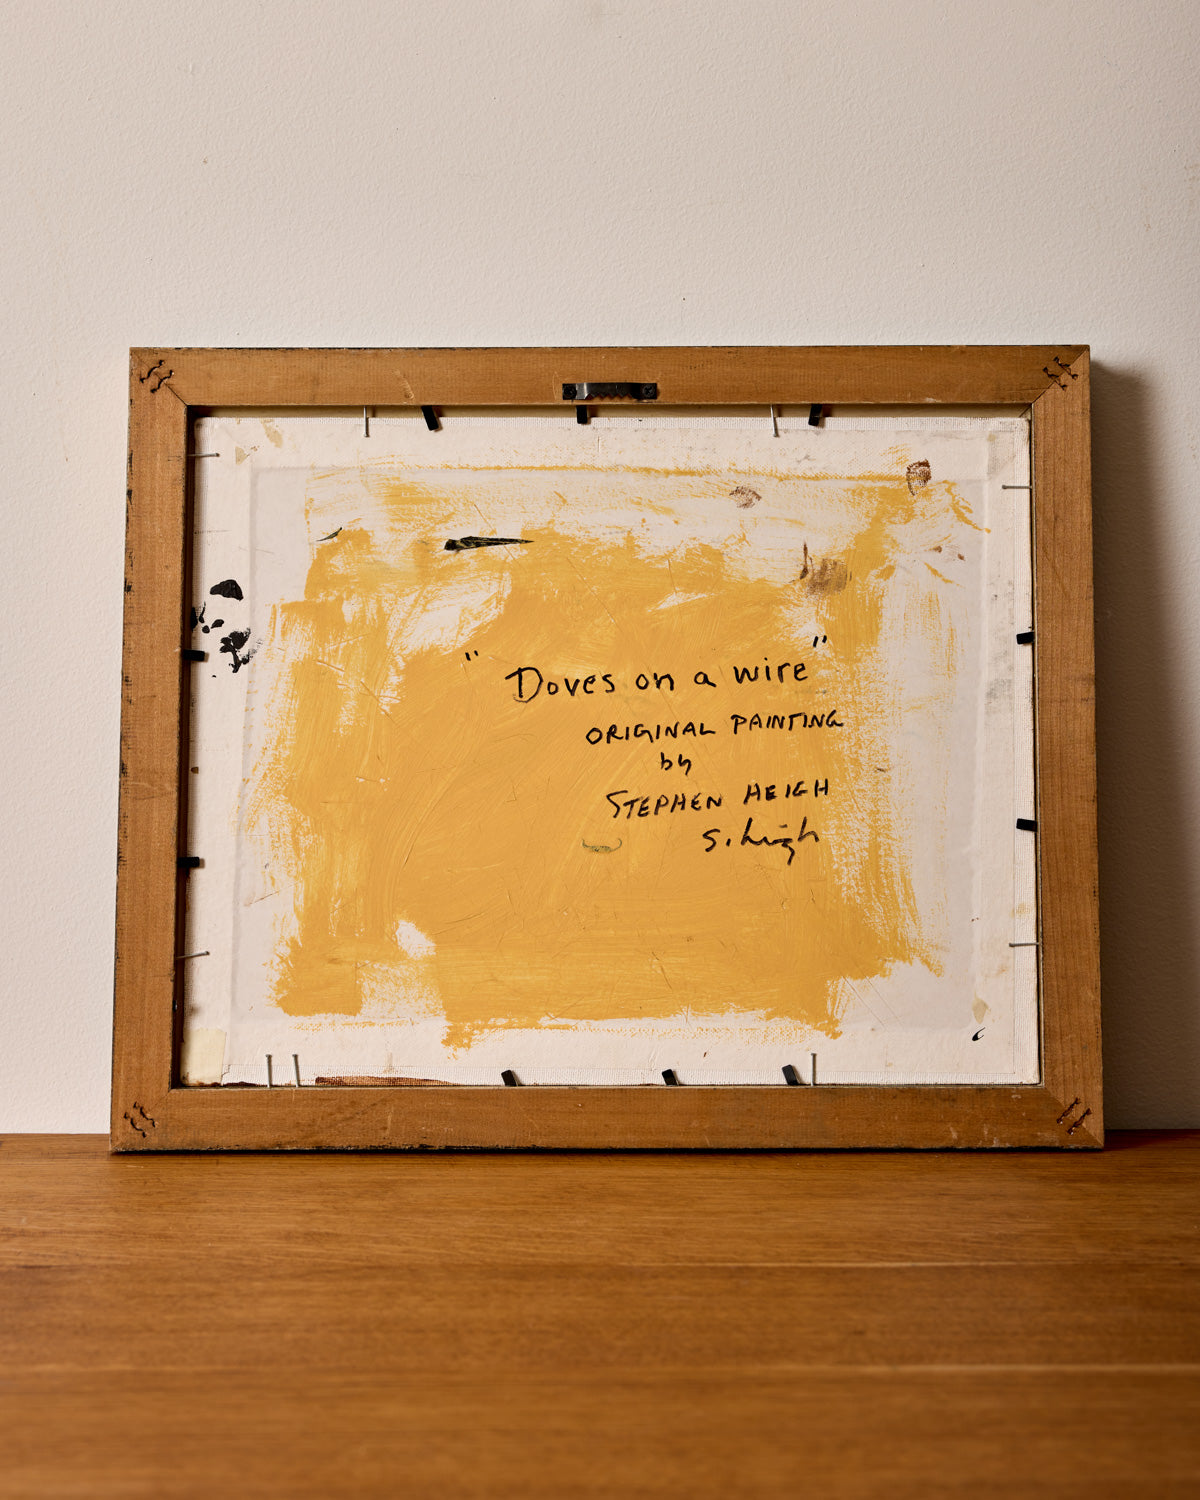 "Doves on a wire"
ORIGINAL PAINTING
by
STEPHEN HEIGH
S. Heigh